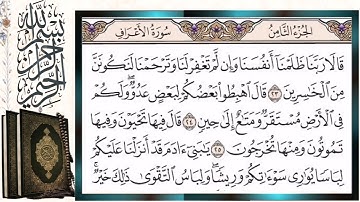 الجُزْءُ الثَّامِنُ
سُورَةُ الأَعْرَافِ
بِسْمِ اللَّهِ الرَّحْمَٰنِ الرَّحِيمِ
قَالَا رَبَّنَا ظَلَمْنَا أَنفُسَنَا وَإِن لَّمْ تَغْفِرْ لَنَا وَتَرْحَمْنَا لَنَكُونَنَّ
مِنَ الْخَاسِرِينَ ٢٣ قَالَ اهْبِطُوا بَعْضُكُمْ لِبَعْضٍ عَدُوٌّ ۖ وَلَكُمْ
فِي الْأَرْضِ مُسْتَقَرٌّ وَمَتَاعٌ إِلَىٰ حِينٍ ٢٤ قَالَ فِيهَا تَحْيَوْنَ وَفِيهَا
تَمُوتُونَ وَمِنْهَا تُخْرَجُونَ ٢٥ يَا بَنِي آدَمَ قَدْ أَنزَلْنَا عَلَيْكُمْ
لِبَاسًا يُوَارِي سَوْءَاتِكُمْ وَرِيشًا ۖ وَلِبَاسُ التَّقْوَىٰ ذَٰلِكَ خَيْرٌ ۚ